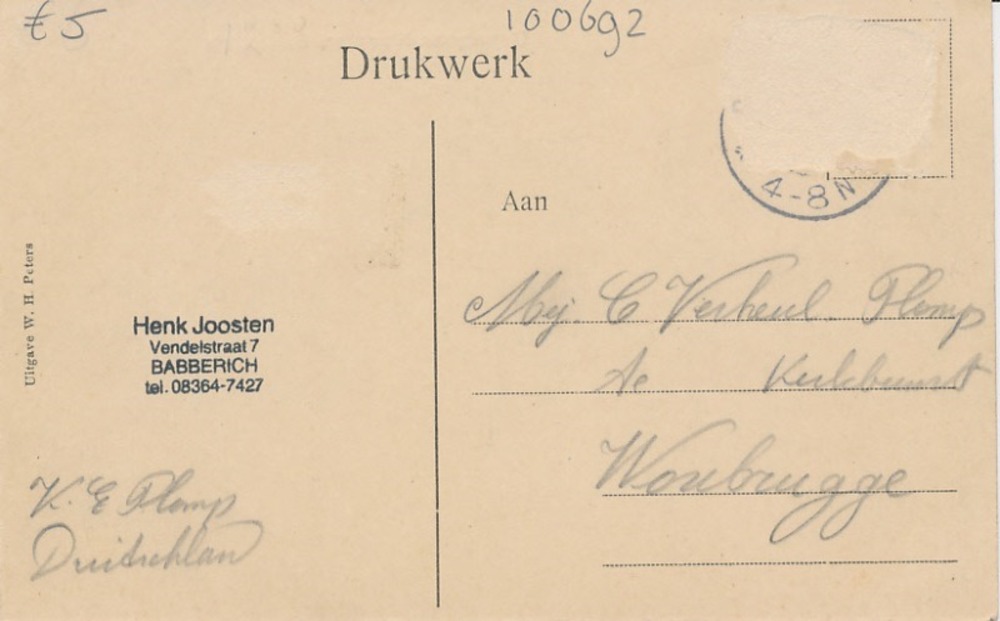 €5
100692
Drukwerk
4-8 N
Aan
Uitgave W. H. Peters
Henk Joosten
Vendelstraat 7
BABBERICH
tel. 08364-7427
Mej. C Verheul. Plomp
Woubrugge
K. E Plomp
Duitschlan